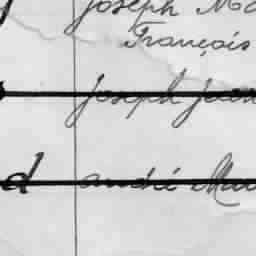 Joseph Ma
François
Joseph Jean
d André Mau